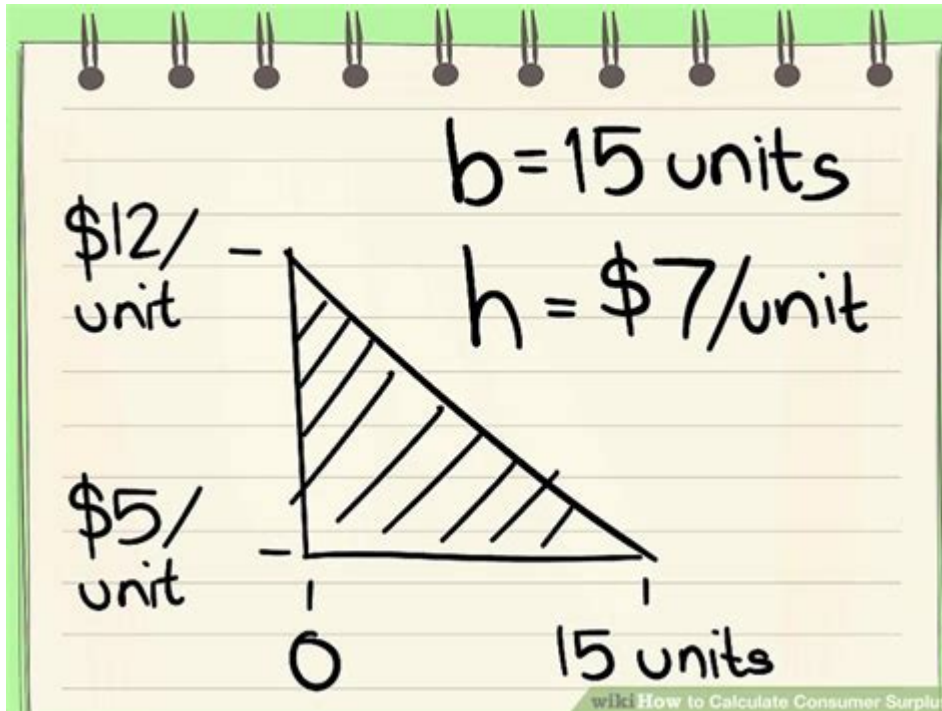 b = 15 units
$12/
unit
h = $7/unit
$5/
unit
0
15 units
wikiHow to Calculate Consumer Surplu